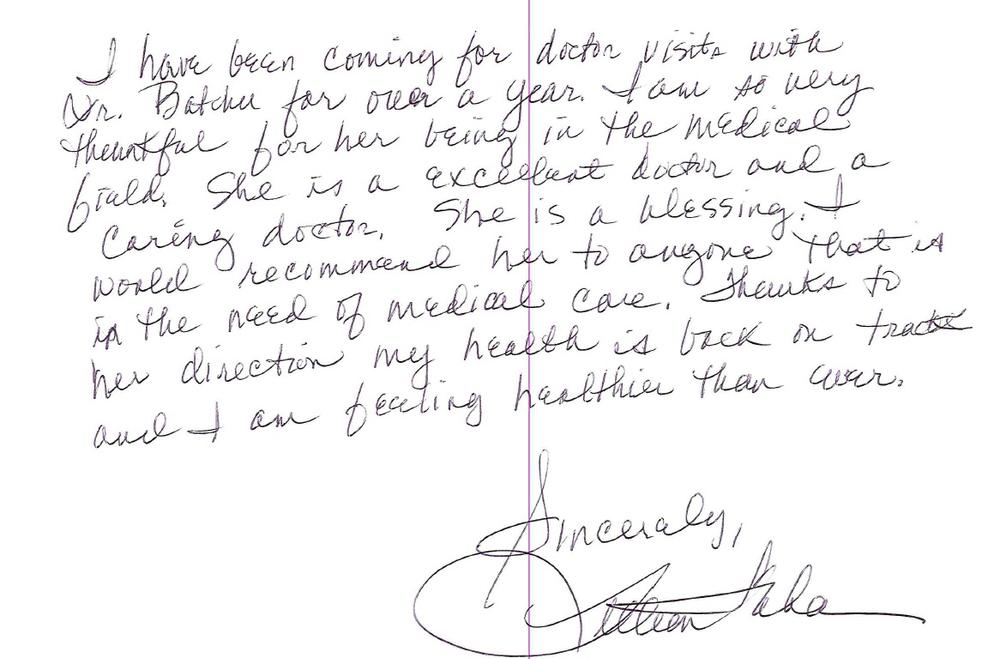 I have been coming for doctor visits with
Dr. Batchu for over a year. I am so very
thankful for her being in the medical
field. She is a excellent doctor and a
Caring doctor. She is a blessing. I
would recommend her to anyone that is
in the need of medical care. Thanks to
her direction my health is back on track
and I am feeling healthier than ever.
Sincerely,